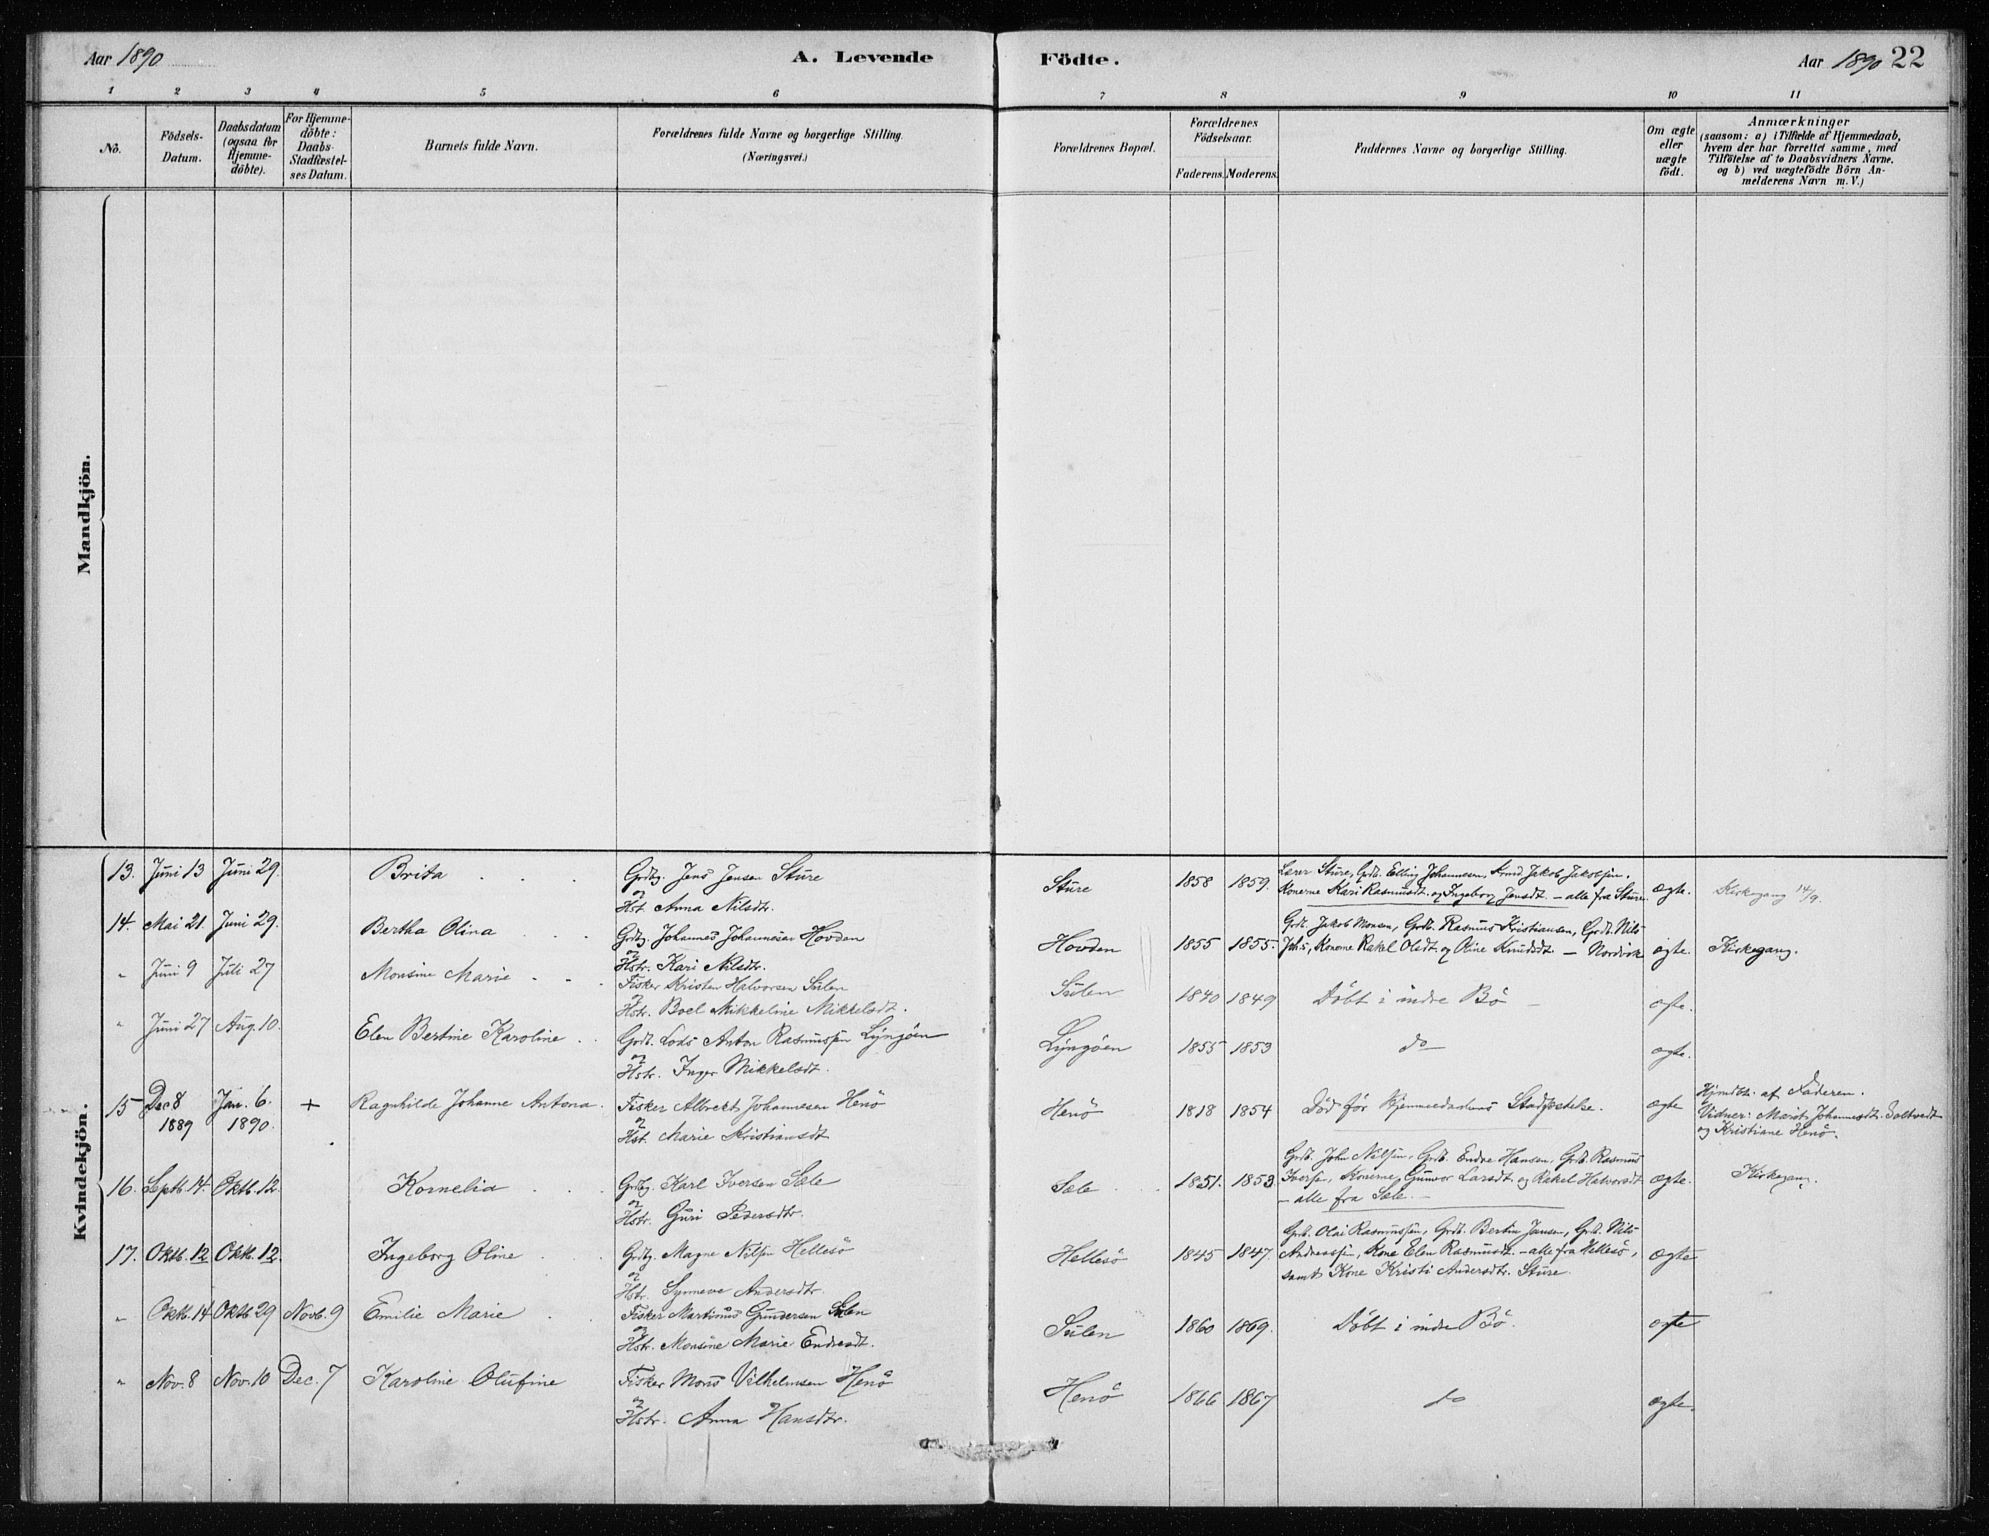 Aar 1890
A. Levende
Födte.
Aar 1890 22
1 2 3 4 5 6 7 8 9 10 11
No.
Födsels-
Datum.
Daabsdatum
(ogsaa for
Hjemme-
döbte).
For Hjemme-
döbte:
Daabs-
Stadfæstel-
ses Datum.
Barnets fulde Navn.
Forældrenes fulde Navne og borgerlige Stilling.
(Næringsvei.)
Forældrenes Bopæl.
Forældrenes
Födselsaar.
Faderens. Moderens.
Faddernes Navne og borgerlige Stilling.
Om ægte
eller
uægte
födt.
Anmærkninger
(saasom: a) i Tilfælde af Hjemmedaab,
hvem der har forrettet samme, med
Tilföielse af to Daabsvidners Navne,
og b) ved uægtefödte Börn An-
melderens Navn m. V.)
Mandkjön.
Kvindekjön.
13. Juni 13 Juni 29. Brita
Grdbg. Jens Jensen Sture
og
Hst. Anna Nilsdtr.
Sture 1858 1859.
Lærer Sture, Grdb. Elling Johannesen, Jakob Jakobsen,
Konerne Kari Rasmusdt. og Ingeborg Jensdt. – alle fra Sture
ægte. Kirkegang 14/9.
14. Mai 21. Juni 29. Bertha Olina
Grdbg. Johannes Johannesen Hovden
og
Hstr. Kari Nilsdtr.
Hovden 1855 1855
Grdb. Jakob Monsen, Grdb. Rasmus Kristiansen, Grdb. Nils
Johs, Konerne Rakel Olsdt. og Oline Knudsdt. – Nordvik
ægte. Kirkegang.
" Juni 9 Juli 27 Monsine Marie
Fisker Kristen Halvorsen Sulen
og
Hstr. Boel Mikkeline Mikkelsdt.
Sulen 1840 1849 Döbt i indre Bö ægte.
" Juni 27 Aug. 10. Elen Bertine Karoline
Grdb. Lods Anton Rasmussen Lyngöen
og
Hstr. Inger Mikkelsdt.
Lyngöen 1855 1853 do ægte.
15 Dec 8 Jan. 6. + Ragnhilde Johanne Antona
1889 1890.
Fisker Albrekt Johannesen Henö
og
Hst. Marie Kristiansdt
Henö 1818 1854 Död för Hjemmedaabens Stadfæstelse. ægte
Hjmdbt. af Faderen.
Vidner: Marit Johannesdt. Toltvedt
og Kristiane Henö.
16. Septb. 14. Oktb. 12. Kornelia
Grdbg. Karl Iversen Sæle
og
Hstr. Guri Pedersdtr.
Sæle 1851. 1853.
Grdb. John Nilsen, Grdb. Endre Hansen, Grdb. Rasmus
Iversen, Konerne Gunvor Larsdt. og Rakel Halvorsdt
– alle fra Sæle. –
ægte. Kirkegang.
17. Oktb. 12 Oktb. 12. Ingeborg Oline
Grdbg. Magne Nilsen Hellesö
og
Hstr. Synneve Andersdtr.
Hellesö 1845 1847.
Grb. Olai Rasmussen, Grdb. Bertin Jansen, Grb. Nils
Andreassen, Kone Elen Rasmusdt. – alle fra Hellesö,
samt Kone Kristi Andersdtr. Sture.
ægte
" Oktb. 14 Oktb 29 Novb. 9 Emilie Marie
Fisker Martinus Gundersen Sulen
og
Hstr. Monsine Marie Endresdt.
Sulen 1860 1869. Döbt i indre Bö. ægte
" Nov. 8 Nov. 10 Dec. 7 Karoline Olufine
Fisker Mons Vilhelmsen Henö
og
Hstr. Anna Hansdtr.
Henö 1866 1867 do ægte.